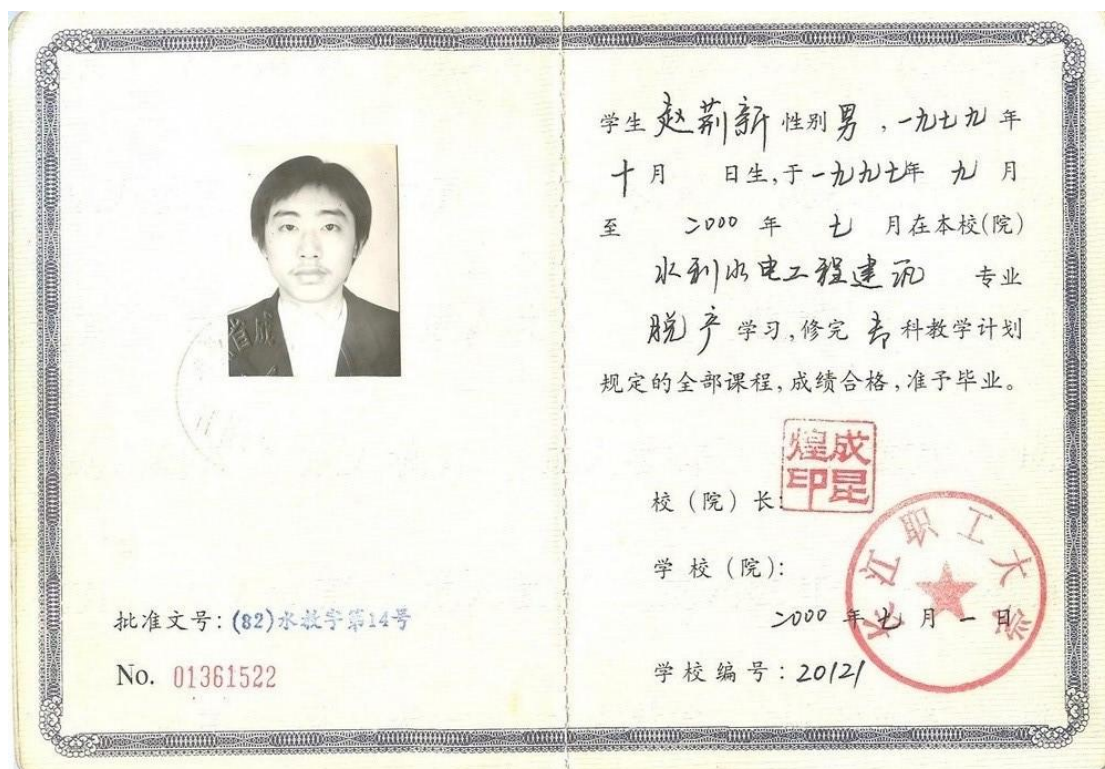 批准文号：(82)水教字第14号
No. 01361522
学生 赵荊新 性别 男 ，一九七九 年
十 月 日生，于 一九九七年 九 月
至 2000 年 七 月在本校(院)
水利水电工程建筑 专业
脱产 学习，修完 专 科教学计划
规定的全部课程，成绩合格，准予毕业。
校（院）长：
成昆煌印
学 校（院）：
长江职工大学
2000 年 七 月 一 日
学校编号：20121